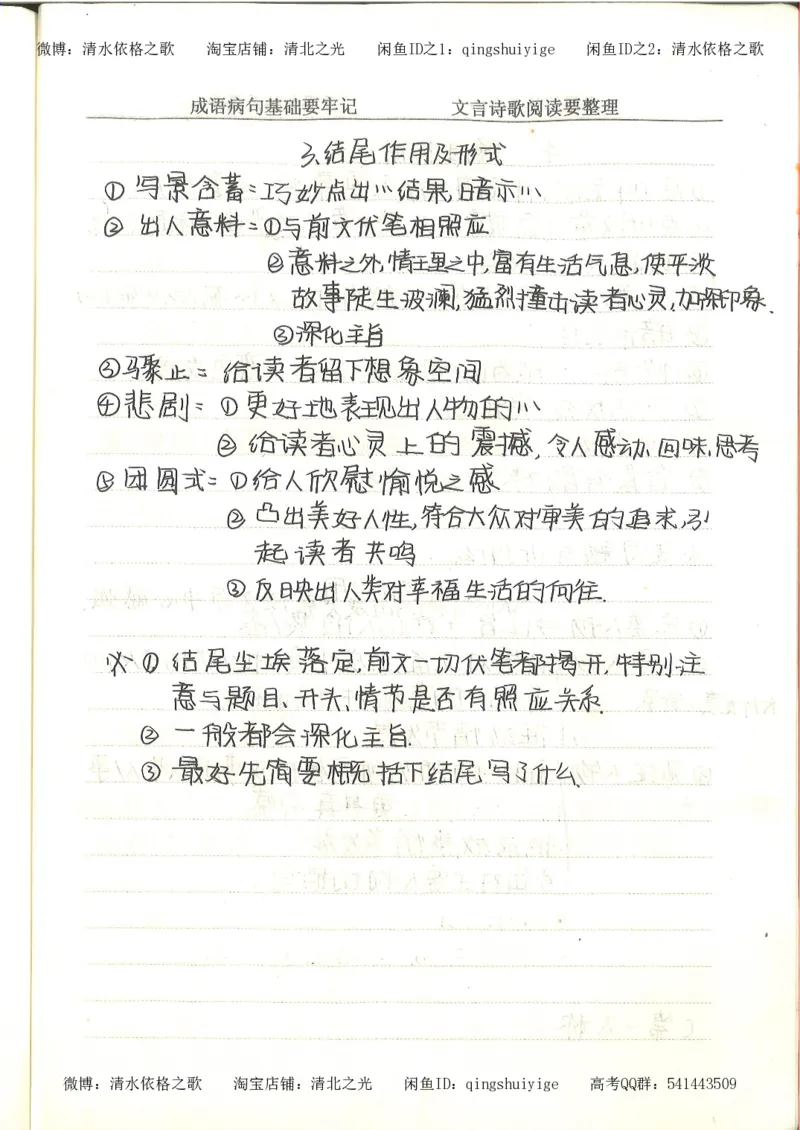 微博：清水依格之歌 淘宝店铺：清北之光 闲鱼ID之1：qingshuiyige 闲鱼ID之2：清水依格之歌
成语病句基础要牢记 文言诗歌阅读要整理
3、结尾作用及形式
① 写景含蓄：巧妙点出小结果，暗示小
② 出人意料：①与前文伏笔相照应
②意料之外，情理之中，富有生活气息，使平淡
故事陡生波澜，猛烈撞击读者心灵，加深印象.
③深化主旨
③骤止：给读者留下想象空间
④悲剧：①更好地表现出人物的小
② 给读者心灵上的震撼，令人感动、回味、思考
⑤ 团圆式：①给人欣慰愉悦之感
② 凸出美好人性，符合大众对审美的追求，引
起读者共鸣
③ 反映出人类对幸福生活的向往.
① 结尾尘埃落定，前文一切伏笔都揭开，特别注
意与题目、开头、情节是否有照应关系.
② 一般都会深化主旨.
③ 最好先简要概括下结尾写了什么.
微博：清水依格之歌 淘宝店铺：清北之光 闲鱼ID：qingshuiyige 高考QQ群：541443509